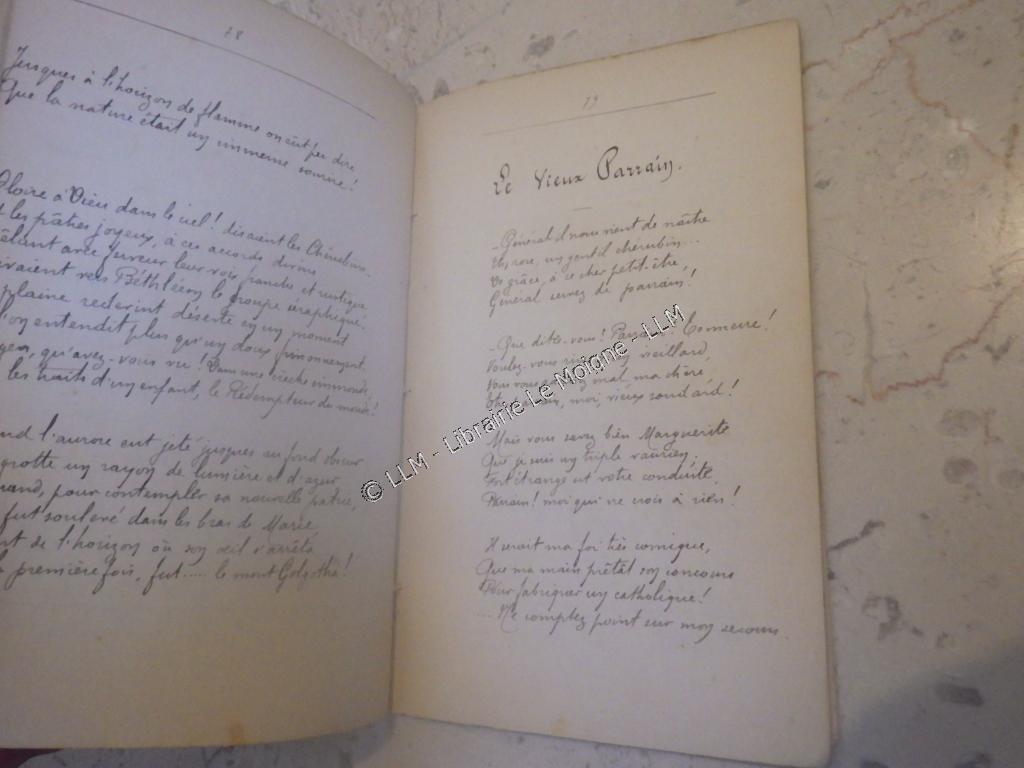 78
Jusques à l'horizon de flamme on eût pu dire,
Que la nature était un immense sourire!
Gloire à Dieu dans le ciel! disaient les Chérubins.
les pâtres joyeux, à ces accords divins
mêlant avec ferveur leur voix franche et rustique,
vers Bethléem le groupe séraphique.
plaine redevint déserte en un moment
l'on entendit plus qu'un doux
qu'avez-vous vu! Dans une crèche immonde,
les traits d'un enfant, le Rédempteur du monde!
l'aurore eut jeté jusques au fond obscur
grotte un rayon de lumière et d'azur
pour contempler sa nouvelle patrie,
fut soulevé dans les bras de Marie
de l'horizon où son œil s'arrêta
première fois, fut..... le mont Golgotha!
79
Le Vieux Parrain.
- Général il nous vient de naître
rose, un gentil chérubin...
De grâce, à ce cher petit être,
Général servez de parrain!
- Que dites-vous! Parrain! Tonnerre!
Voulez-vous vieillard,
Vous mal, ma chère,
moi, vieux soudard!
Mais vous savez bien Marguerite
Que je suis un triple vaurien.
Fort étrange est votre conduite,
Parrain! moi qui ne crois à rien!
Il serait ma foi très comique,
Que ma main prêtât son concours
Pour fabriquer un catholique!
... Ne comptez point sur mon secours.
© LLM - Librairie Le Moigne - LLM